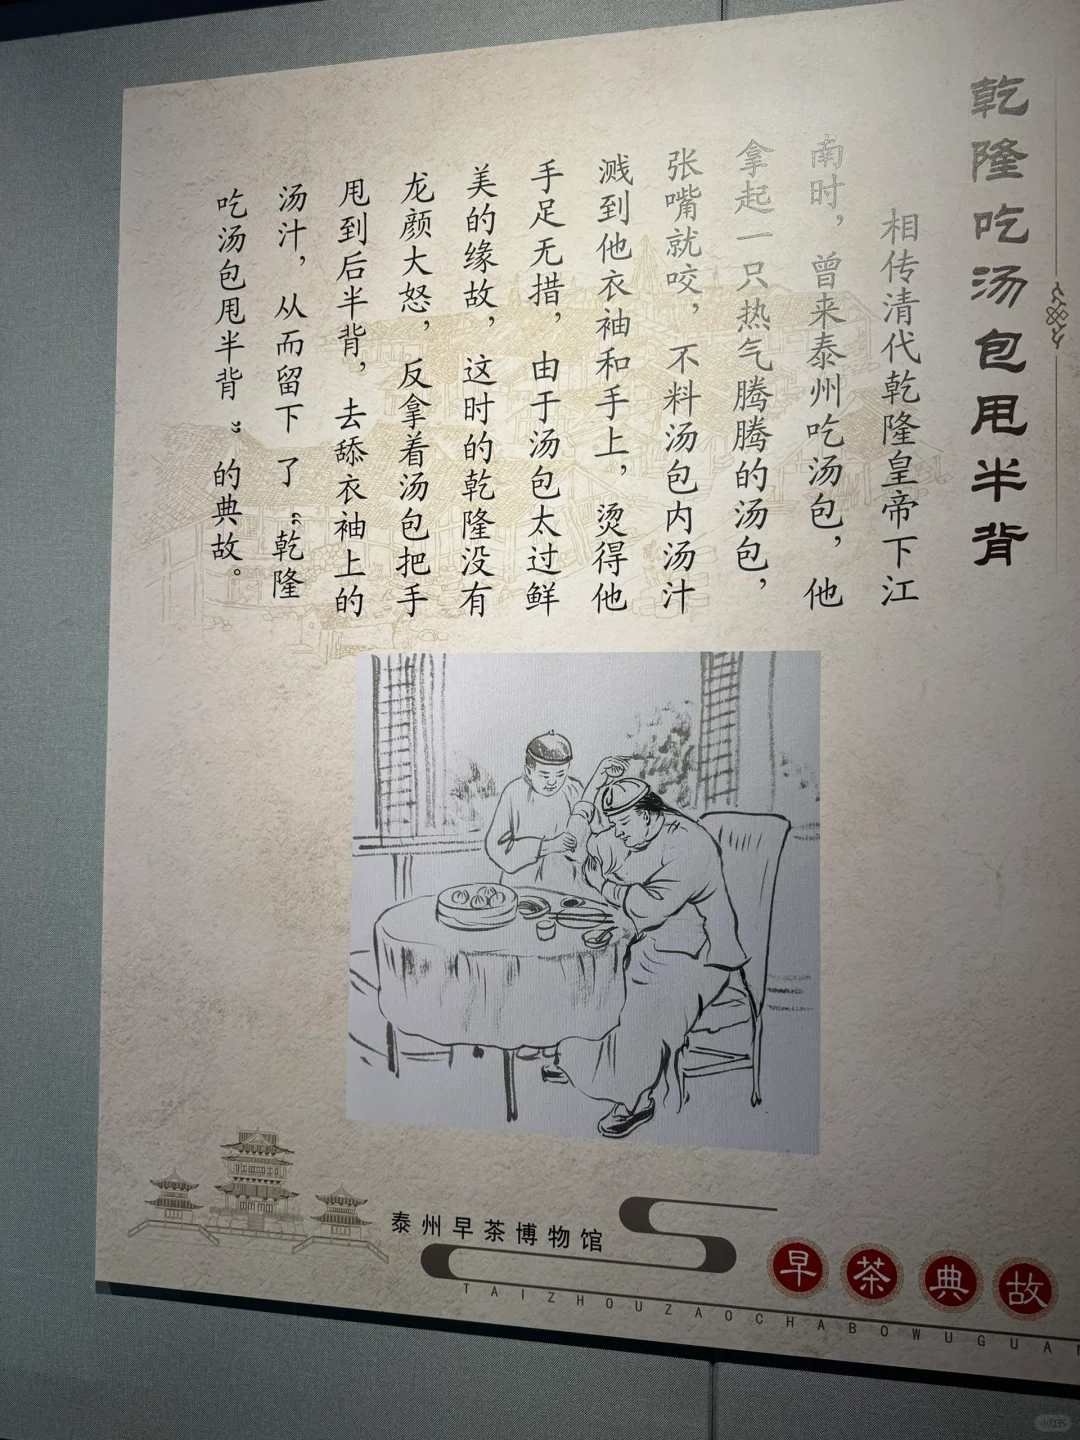 乾隆吃汤包甩半背
相传清代乾隆皇帝下江
南时，曾来泰州吃汤包，他
拿起一只热气腾腾的汤包，
张嘴就咬，不料汤包内汤汁
溅到他衣袖和手上，烫得他
手足无措，由于汤包太过鲜
美的缘故，这时的乾隆没有
龙颜大怒，反拿着汤包把手
甩到后半背，去舔衣袖上的
汤汁，从而留下了“乾隆
吃汤包甩半背”的典故。
泰州早茶博物馆
TAIZHOUZAOCHABOWUGUAN
早茶典故
小红书